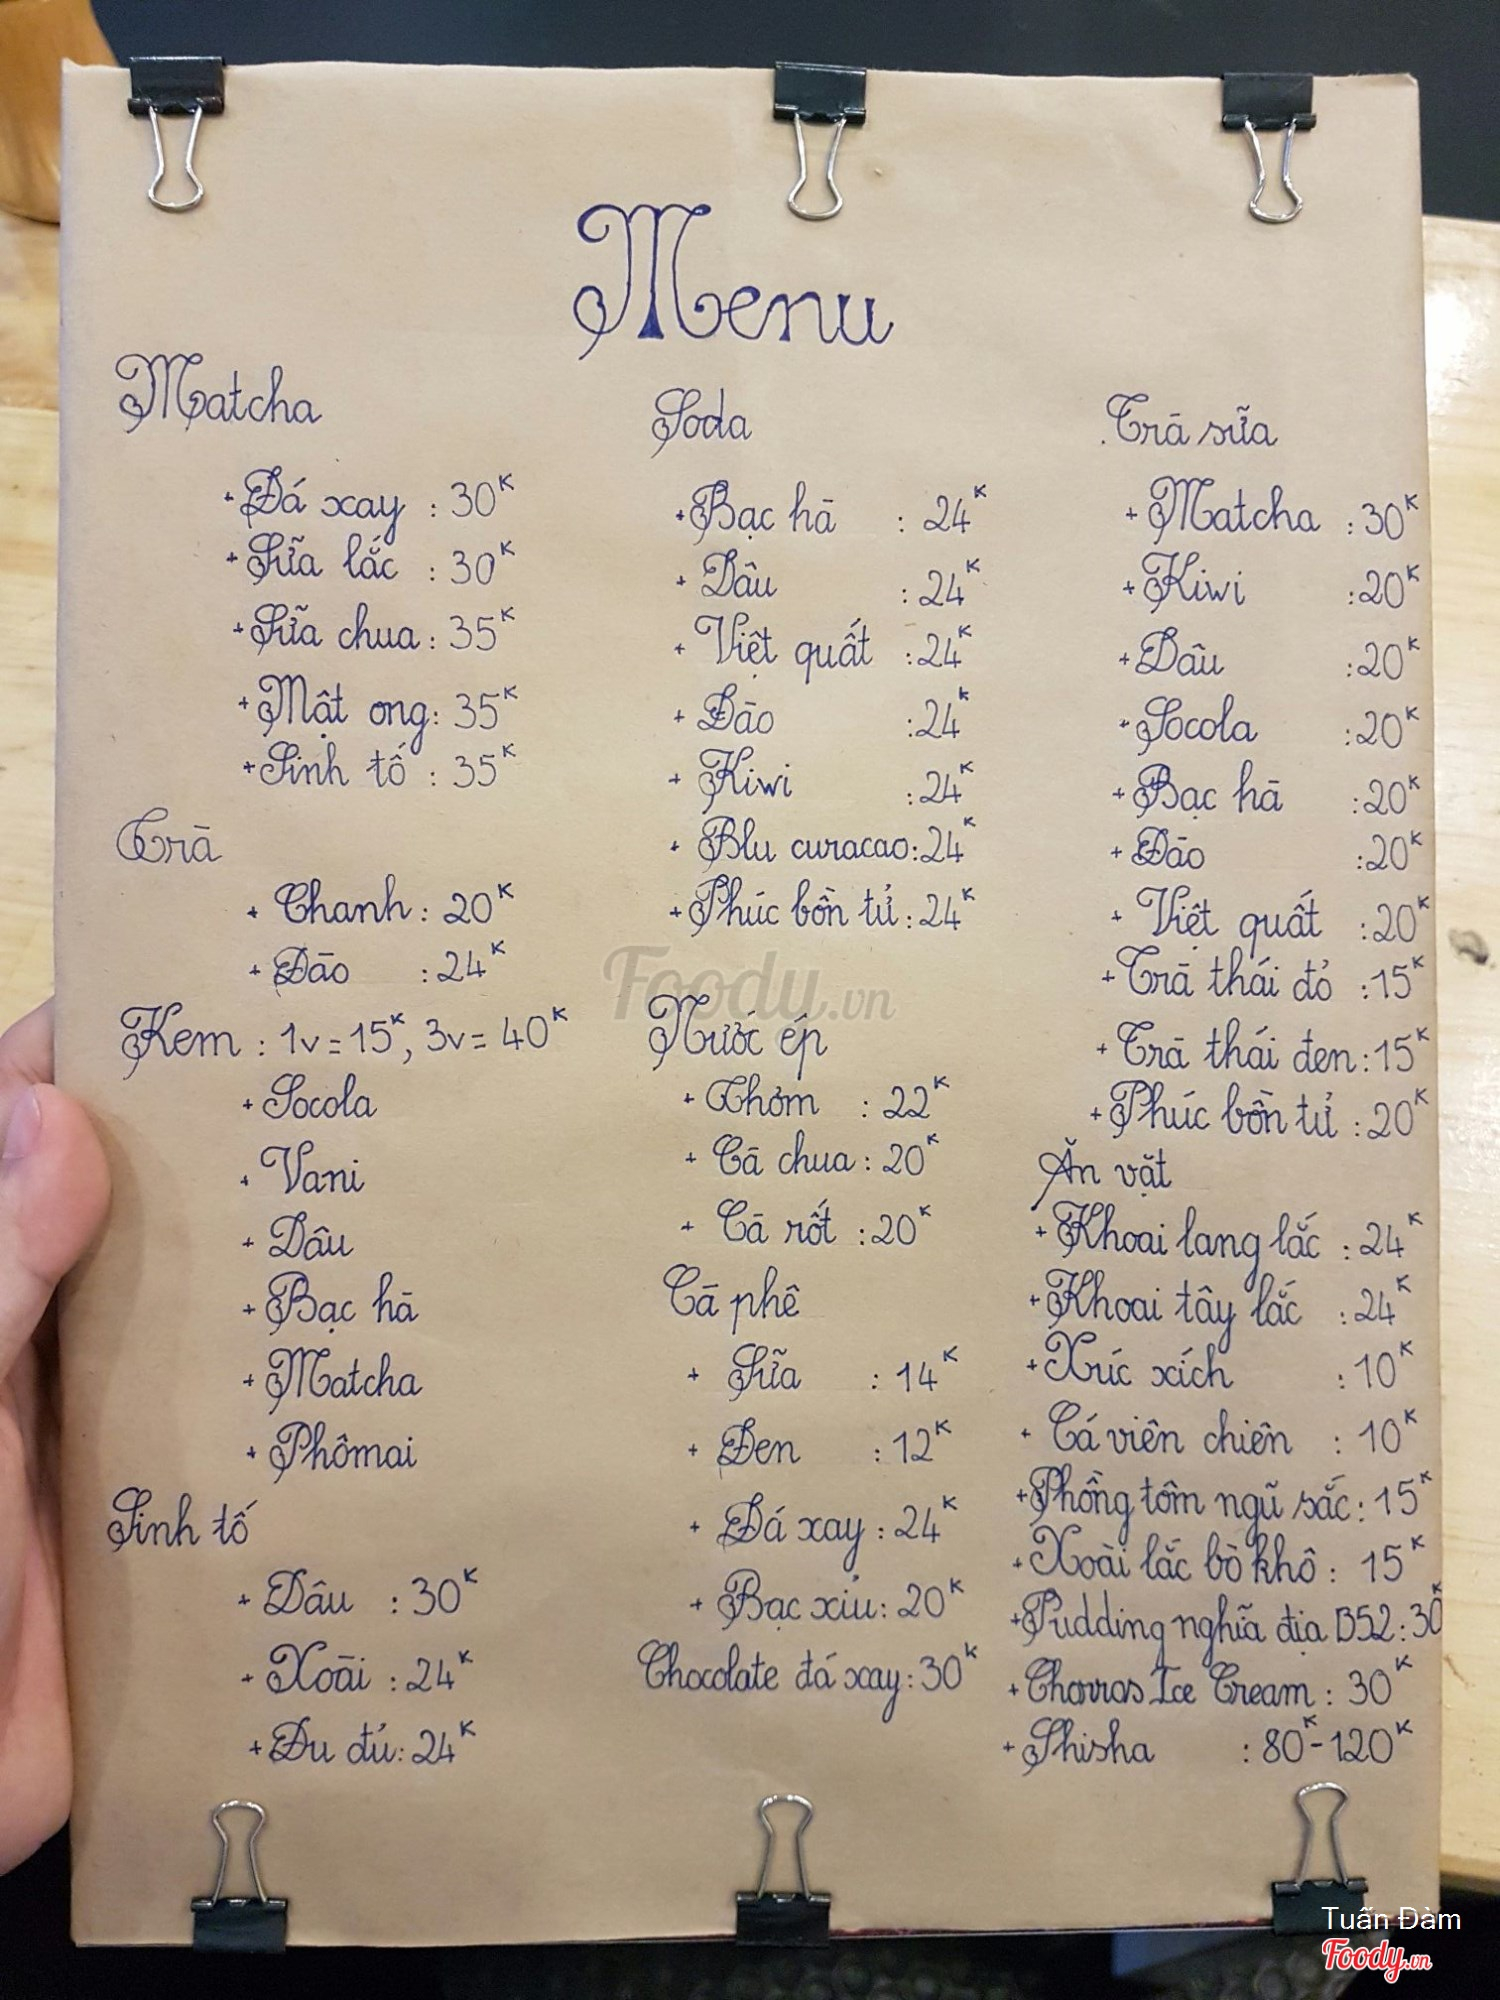 Menu
Matcha
+ Đá xay : 30K
+ Sữa lắc : 30K
+ Sữa chua : 35K
+ Mật ong : 35K
+ Sinh tố : 35K
Trà
+ Chanh : 20K
+ Đào : 24K
Kem : 1v = 15K, 3v = 40K
+ Socola
+ Vani
+ Dâu
+ Bạc hà
+ Matcha
+ Phômai
Sinh tố
+ Dâu : 30K
+ Xoài : 24K
+ Đu đủ : 24K
Soda
+ Bạc hà : 24K
+ Dâu : 24K
+ Việt quất : 24K
+ Đào : 24K
+ Kiwi : 24K
+ Blu curacao : 24K
+ Phúc bồn tử : 24K
Nước ép
+ Thơm : 22K
+ Cà chua : 20K
+ Cà rốt : 20K
Cà phê
+ Sữa : 14K
+ Đen : 12K
+ Đá xay : 24K
+ Bạc xỉu : 20K
Chocolate đá xay : 30K
Trà sữa
+ Matcha : 30K
+ Kiwi : 20K
+ Dâu : 20K
+ Socola : 20K
+ Bạc hà : 20K
+ Đào : 20K
+ Việt quất : 20K
+ Trà thái đỏ : 15K
+ Trà thái đen : 15K
+ Phúc bồn tử : 20K
Ăn vặt
+ Khoai lang lắc : 24K
+ Khoai tây lắc : 24K
+ Xúc xích : 10K
+ Cá viên chiên : 10K
+ Phồng tôm ngũ sắc : 15K
+ Xoài lắc bò khô : 15K
+ Pudding nghĩa địa B52 : 30K
+ Chorros Ice Cream : 30K
+ Shisha : 80K - 120K
Foody.vn
Tuấn Đàm
Foody.vn